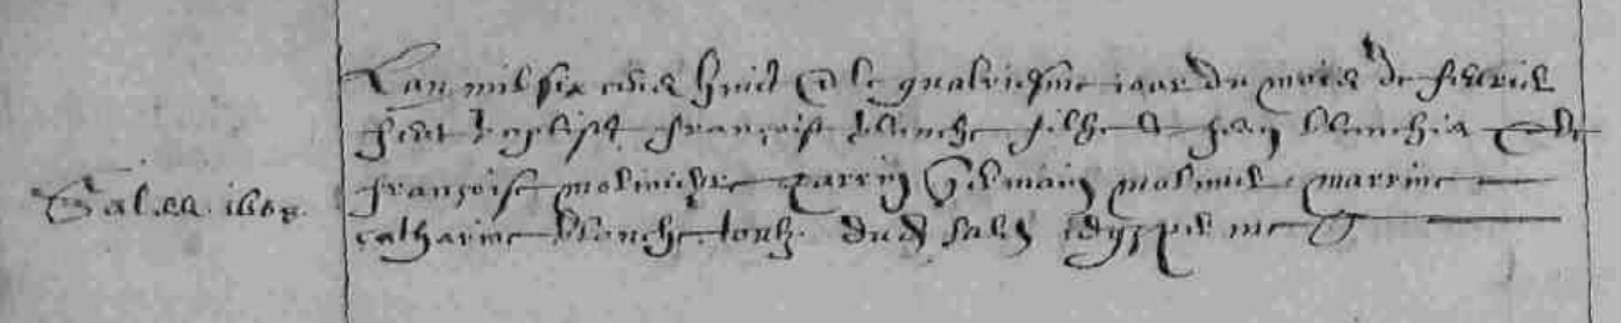 Sales 1608.
L'an mil six cens huict & le quatriesme jour du mois de febvrier
feut baptisé françoise blanche filhe de jean blanchis & de
françoise molinière parrin Germain molinier marrine
catharine blanche touts dud sales par me